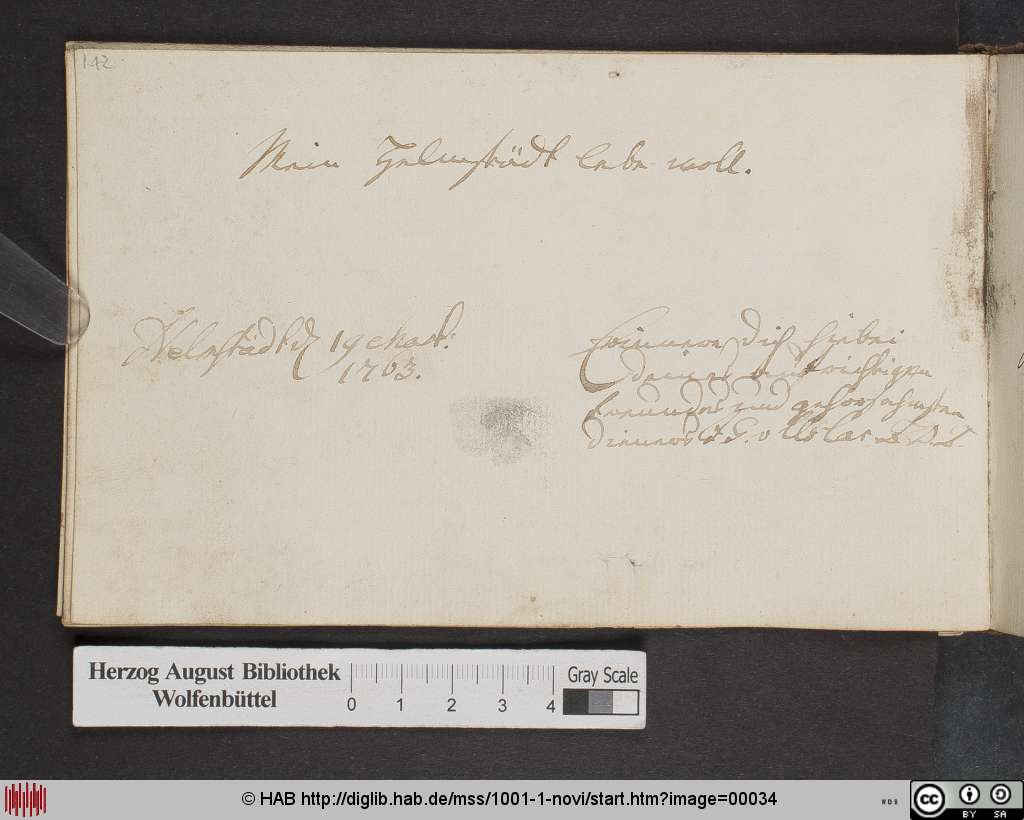 142
Mein Helmstädt lebe woll.
Helmstädt d 19
1763.
Erinnere dich hiebei
deines aufrichtigen
freundes und gehorsahmsten
dieners
Herzog August Bibliothek
Wolfenbüttel
0 1 2 3 4
Gray Scale
© HAB http://diglib.hab.de/mss/1001-1-novi/start.htm?image=00034
cc BY SA